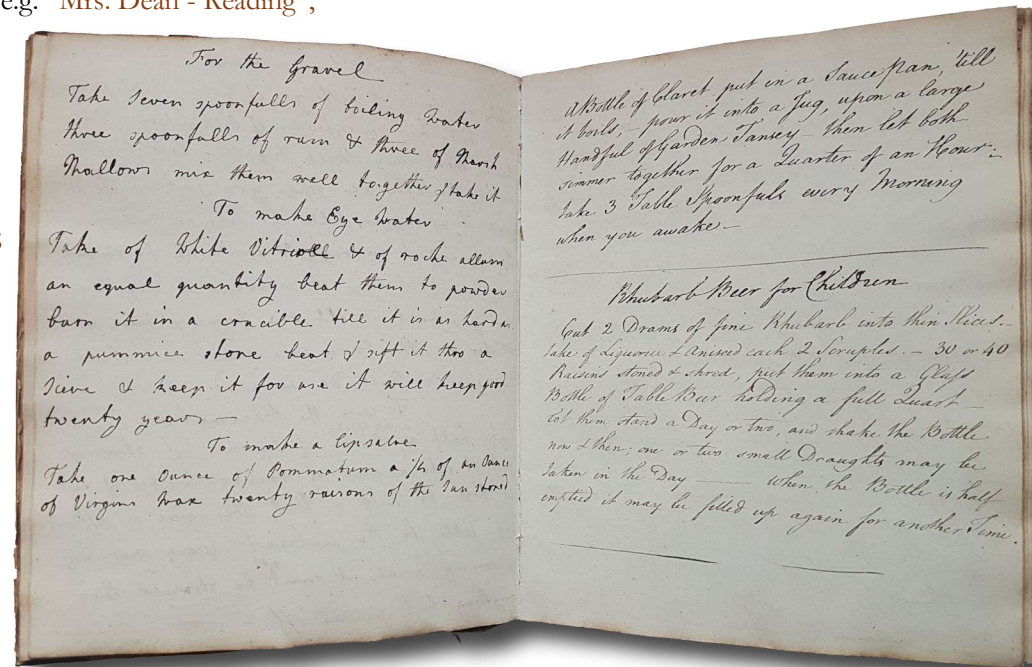 e.g. "Mrs. Dean - Reading",
For the Gravel
Take Seven spoonfulls of boiling water
three spoonfulls of rum & three of Marsh
Mallows mix them well together & take it
To make Eye water
Take of White Vitrioll & of roche allum
an equal quantity beat them to powder
burn it in a crucible till it is as hard as
a pummice stone beat & sift it thro a
Sieve & keep it for use it will keep good
twenty years —
To make a lipsalve
Take one Ounce of Pommatum a 1/2 of an Ounce
of Virgins wax twenty raisons of the Sun stoned
A Bottle of Claret put in a Sauce Pan, 'till
it boils, – pour it into a Jug, upon a large
Handful of Garden Tansey – then let both
simmer together for a Quarter of an Hour:
take 3 Table Spoonfuls every Morning
when you awake. –
Rhubarb Beer for Children
Cut 2 Drams of fine Rhubarb into thin Slices. –
take of Liquorice & Aniseed each 2 Scruples. – 30 or 40
Raisins stoned & shred, put them into a Glass
Bottle of Table Beer holding a full Quart –
Let them stand a Day or two, and shake the Bottle
now & then; one or two small Draughts may be
taken in the Day — when the Bottle is half
emptied it may be filled up again for another Time.